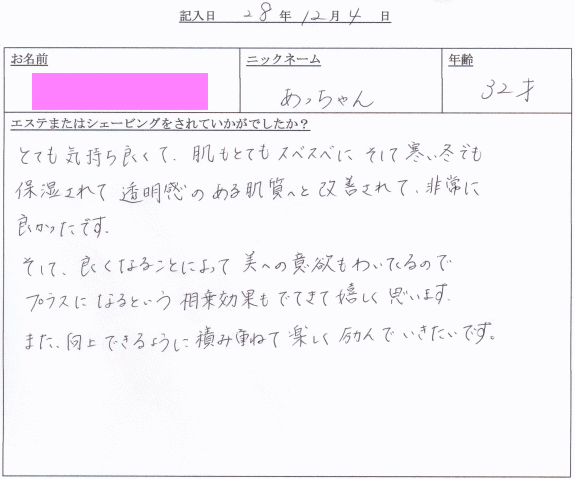 記入日 28 年 12 月 4 日
お名前 ニックネーム 年齢
あっちゃん 32才
エステまたはシェービングをされていかがでしたか？
とても気持ち良くて、肌もとてもスベスベに そして寒い冬でも
保湿されて 透明感のある肌質へと改善されて、非常に
良かったです。
そして、良くなることによって 美への意欲もわいてくるので
プラスになるという 相乗効果もでてきて嬉しく思います。
また、向上できるように積み重ねて楽しく励んでいきたいです。